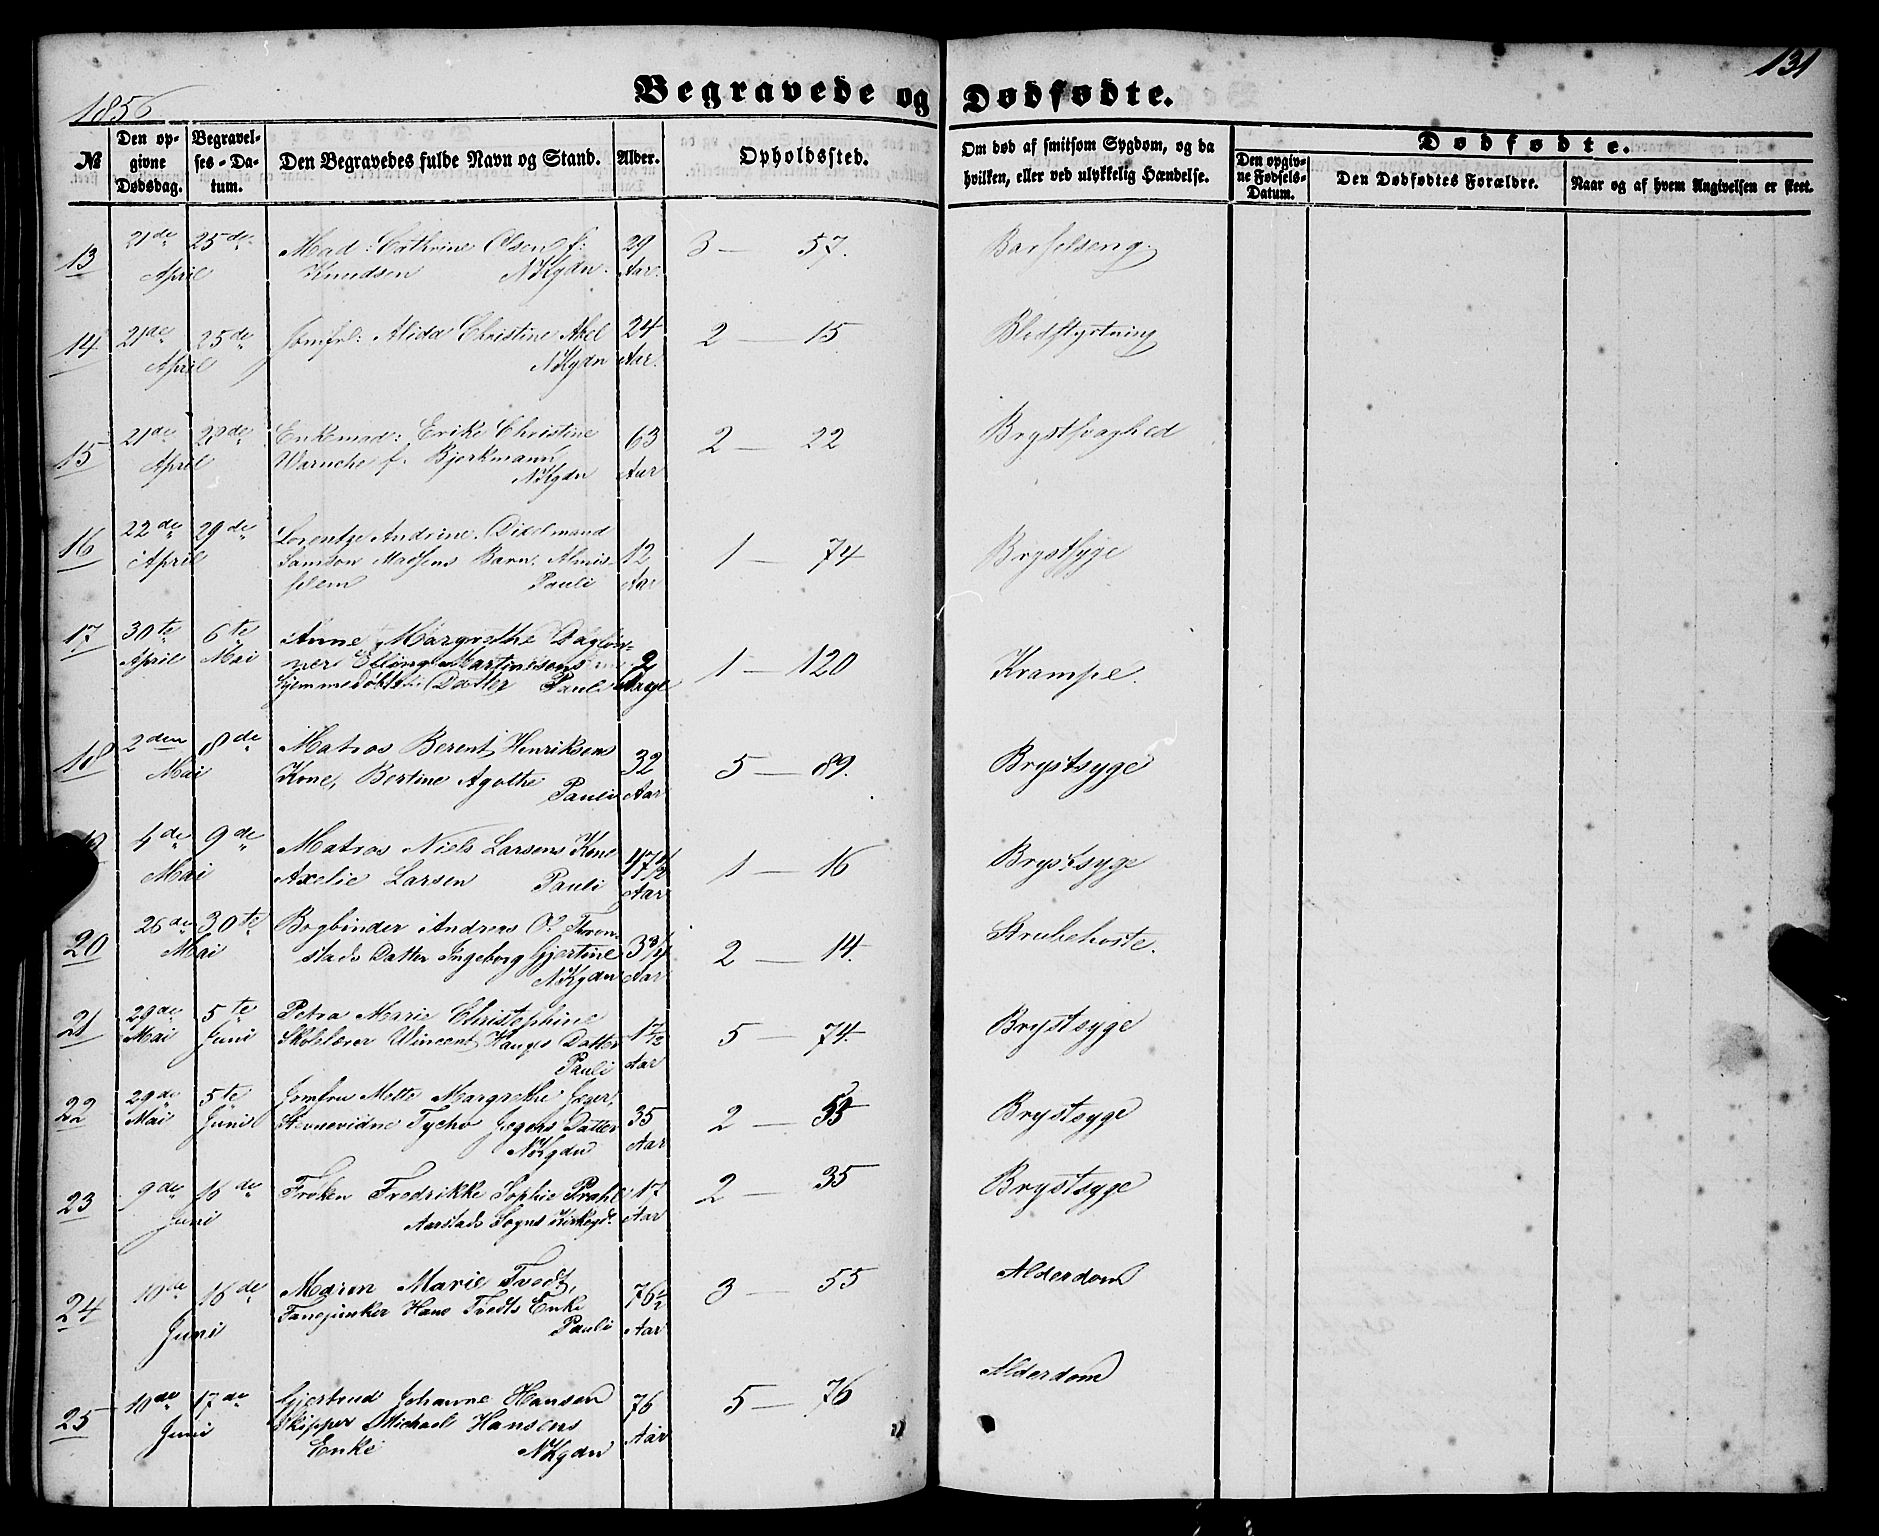 131
1856
Begravede og Dødfødte.
№
Den op-
givne
Dødsdag.
Begravel-
ses-Da-
tum.
Den Begravedes fulde Navn og Stand.
Alder.
Opholdssted.
Om død af smitsom Sygdom, og da
hvilken, eller ved ulykkelig Hændelse.
Dødfødte.
Den opgiv-
ne Fødsels-
Datum.
Den Dødfødtes Forældre.
Naar og af hvem Angivelsen er skeet.
13 21de 25de Mad: Cathrine Olsen f: 29 3 — 57. Barselseng.
April Knudsen NKgdn. Aar.
14 21de 25de Jomfr: Alida Christine Abel 24 2 — 15 Blodstyrtning
April NKgdn Aar.
15 21de 28de Enkemad: Erike Christine 63 2 — 22 Brystsvaghed
April Warncke f. Bjerkmann Aar
NKgdn
16 22de 29de Lorentze Andrine Dixelmand
April Samson Madsens Barn. Almis- 12 1 — 74 Brystsyge
silem Pauli Aar
17 30te 6te Anne Margrethe Dagløn-
April Mai ner Elling Martinssons 2 1 — 120 Krampe.
hjemmedøbte Datter Pauli Dage
18 2den 8de Matros Berent Henriksens 32 5 — 89. Brystsyge
Mai Kone, Bertine Agathe Pauli Aar
4de 9de Matros Niels Larsens Kone 47 1/2 1 — 16 Brystsyge
Mai Axelie Larsen Pauli Aar
20 26de 30te Bogbinder Andreas O. Thron-
Mai stads Datter Ingeborg Gjertine 3 3/4 2 — 14. Strubehoste.
NKgdn Aar
21 29de 5te Petra Marie Christophine
Mai Juni Skolelærer Wincent Hauges Datter 1 1/2 5 — 74. Brystsyge
Pauli Aar
22 29de 5te Jomfru Mette Margrethe Jæger,
Mai Juni Stevnevidne Tycho Jægers Datter 35 2 — 55 Brystsyge
NKgdn Aar
23 9de 16de Frøken Fredrikke Sophie Prahl 17 2 — 35 Brystsyge
Juni Aarstads Sogns Kirkegd. Aar
24 10de 16de Maren Marie Tvedt, 76 1/2 3 — 55 Alderdom
Juni Fanejunker Hans Tvedts Enke Aar
Pauli
25 10de 17de Gjertrud Johanne Hansen 76 5 — 76 Alderdom
Juni Skipper Michael Hansens Aar
Enke NKgdn